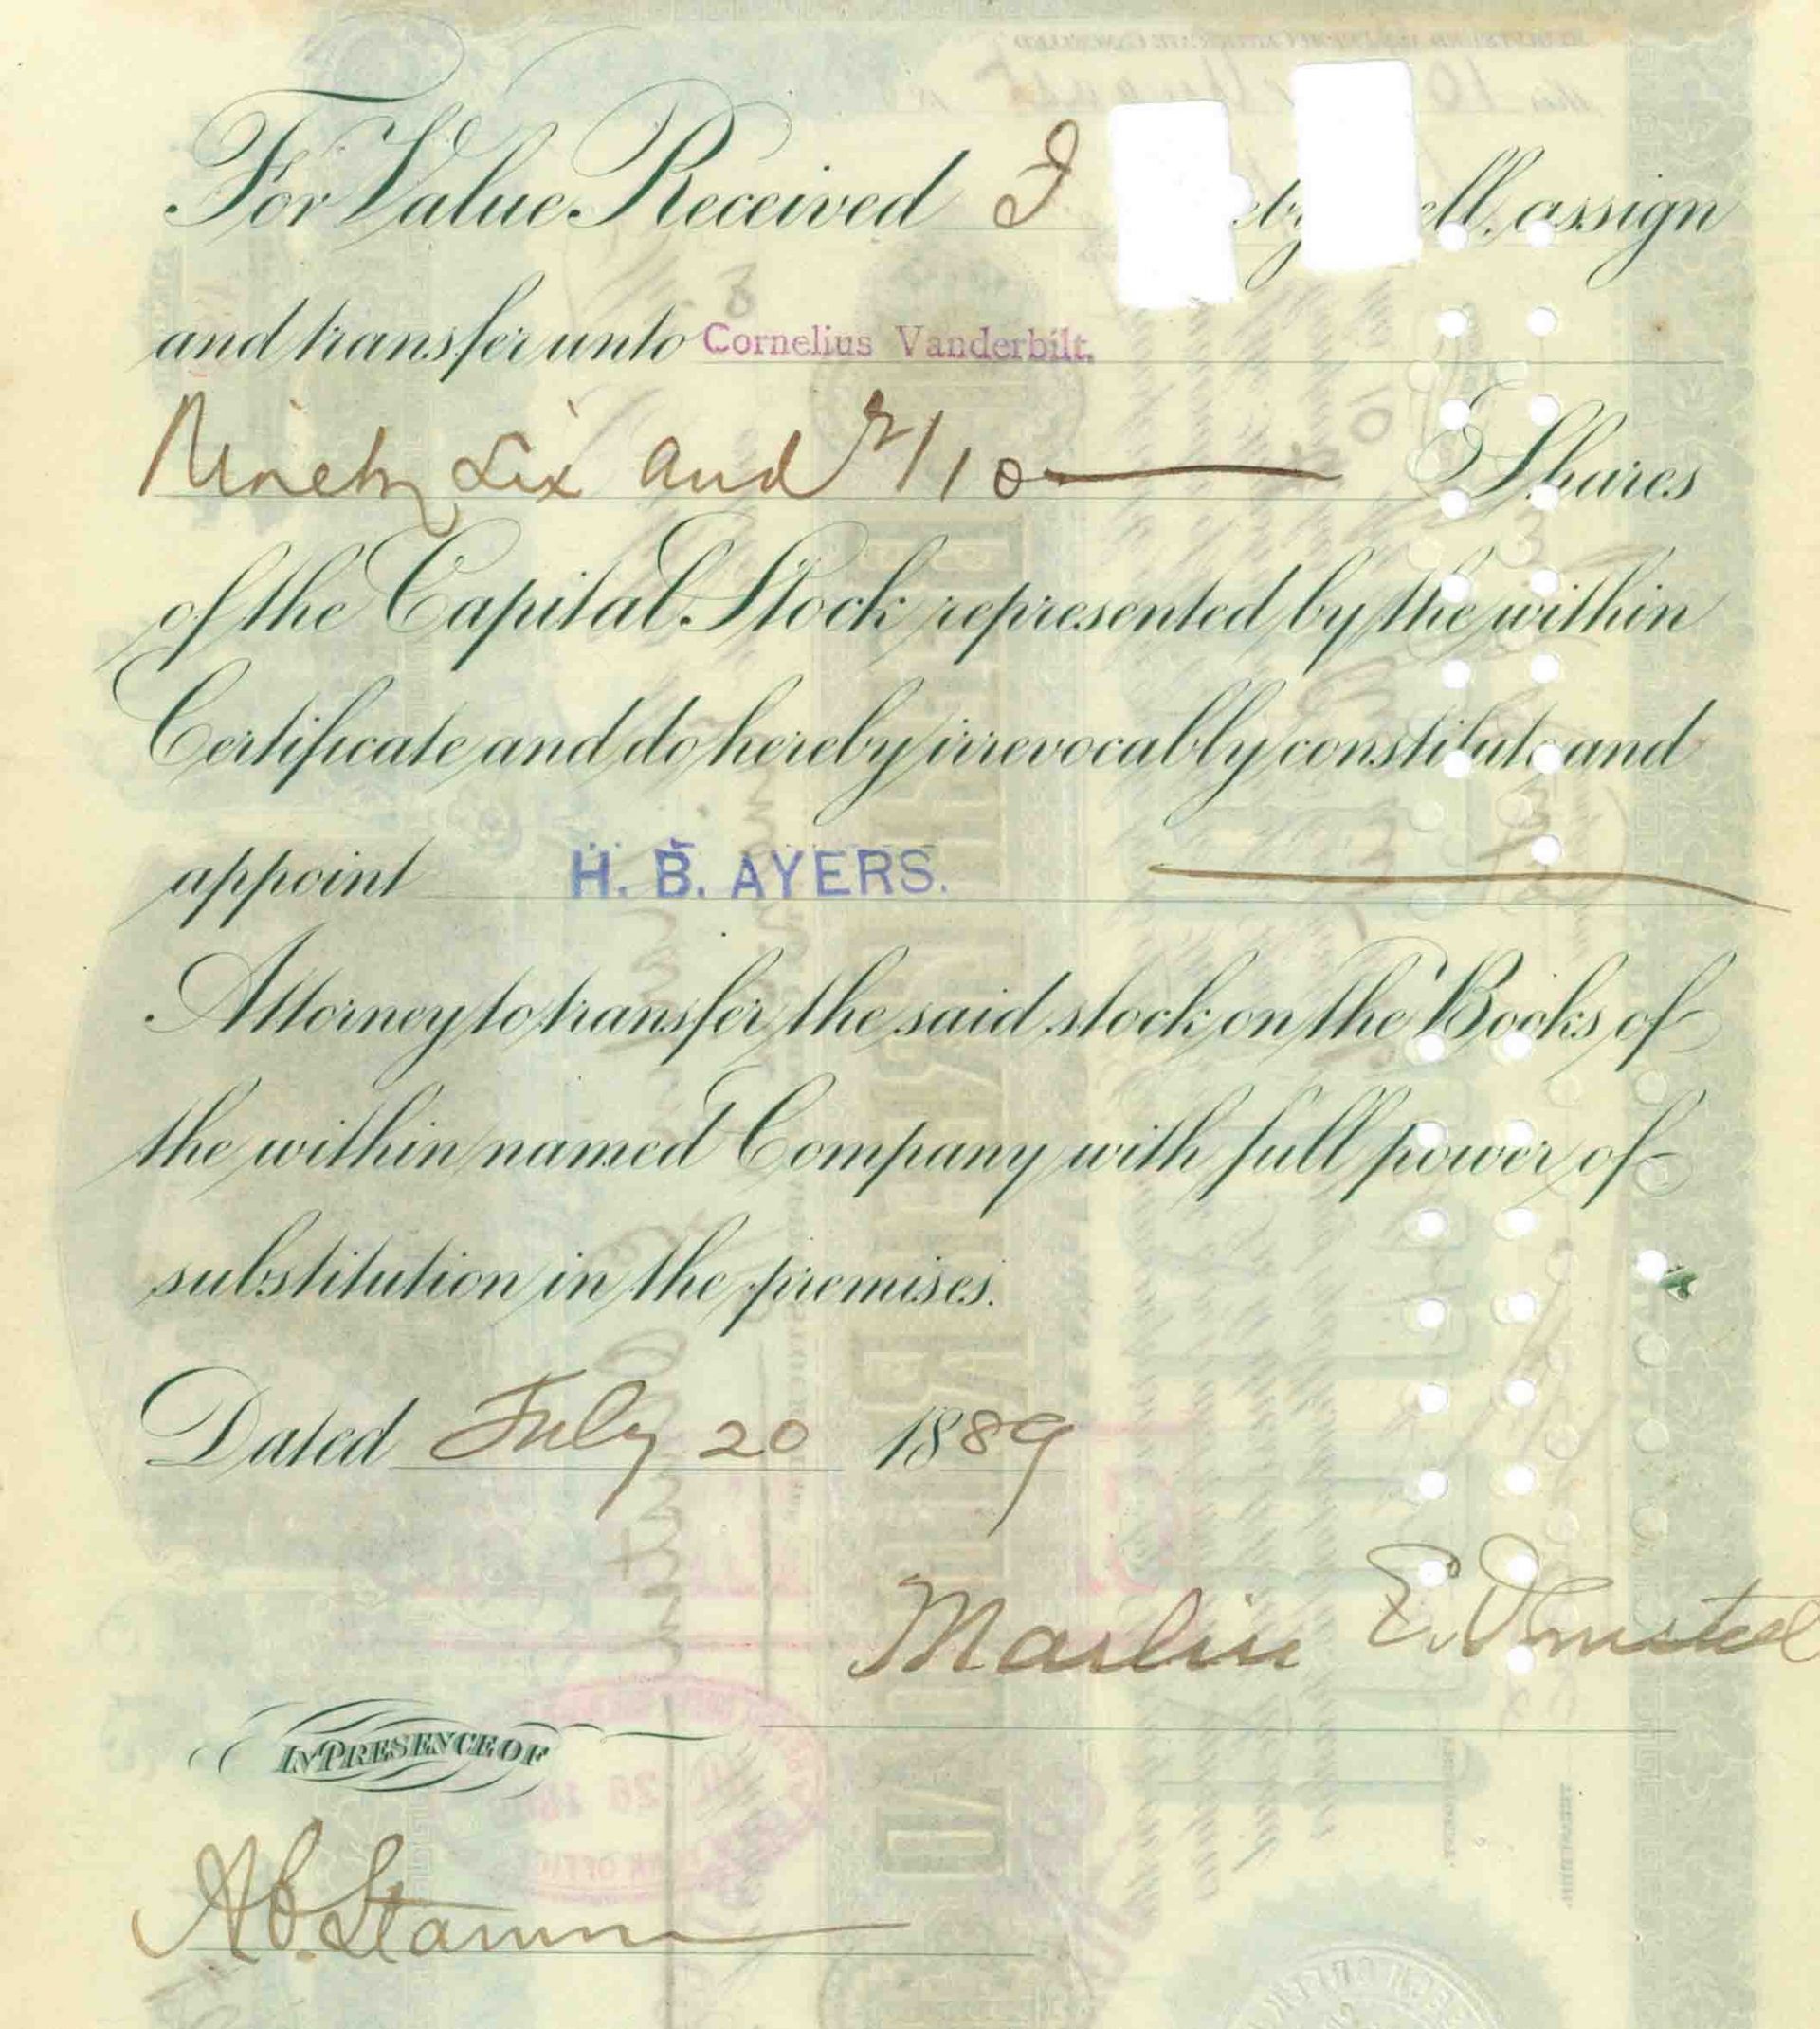 For Value Received I eby ell, assign
and transfer unto Cornelius Vanderbilt.
Ninety Six and /10 Shares
of the Capital Stock represented by the within
Certificate and do hereby irrevocably constitute and
appoint H. B. AYERS.
Attorney to transfer the said stock on the Books of
the within named Company with full power of
substitution in the premises.
Dated July 20 1889
Marlin E. Olmsted
IN PRESENCE OF
A.C. Stamm